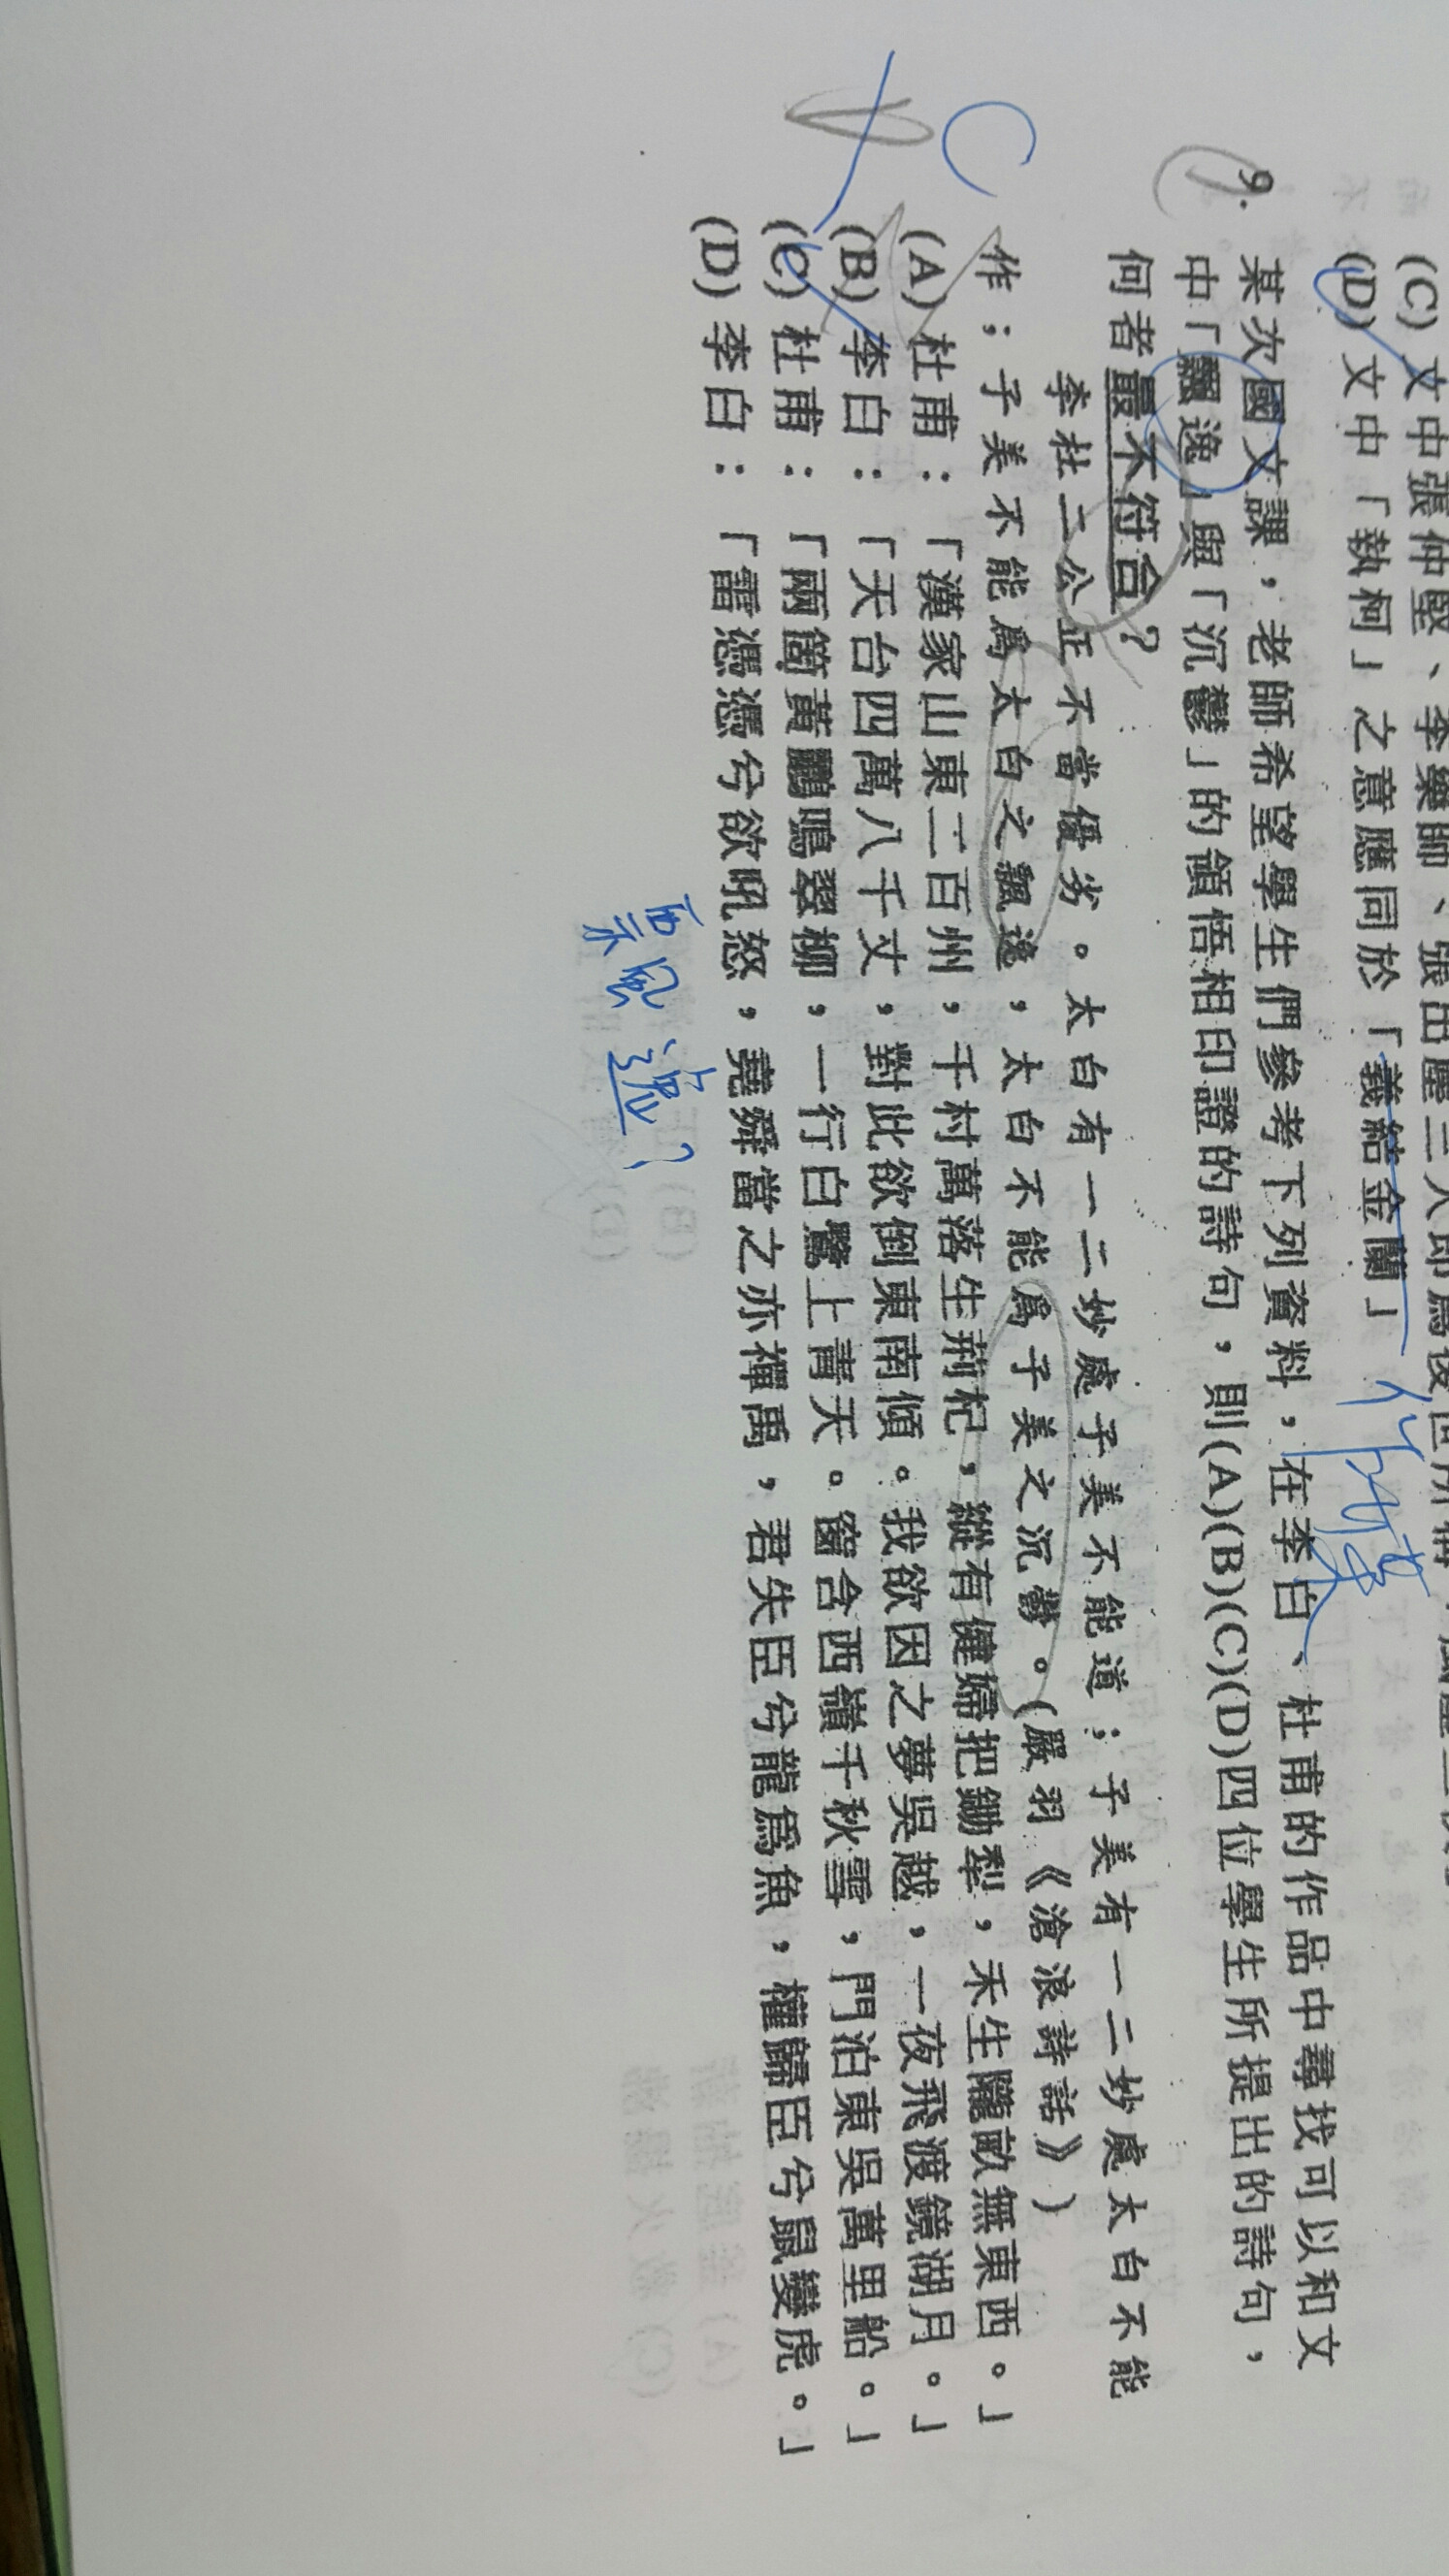 (C) 文中張仲堅、李藥師、張出塵三人即為後世所稱
(D) 文中「執柯」之意應同於「義結金蘭」
9. 某次國文課，老師希望學生們參考下列資料，在李白、杜甫的作品中尋找可以和文
中「飄逸」與「沉鬱」的領悟相印證的詩句，則(A)(B)(C)(D)四位學生所提出的詩句，
何者最不符合？
李杜二公正不當優劣。太白有一二妙處子美不能道；子美有一二妙處太白不能
作；子美不能為太白之飄逸，太白不能為子美之沉鬱。(嚴羽《滄浪詩話》)
C
(A) 杜甫：「漢家山東二百州，千村萬落生荊杞，縱有健婦把鋤犁，禾生隴畝無東西。」
(B) 李白：「天台四萬八千丈，對此欲倒東南傾。我欲因之夢吳越，一夜飛渡鏡湖月。」
(C) 杜甫：「兩箇黃鸝鳴翠柳，一行白鷺上青天。窗含西嶺千秋雪，門泊東吳萬里船。」
(D) 李白：「雷憑憑兮欲吼怒，堯舜當之亦禪禹，君失臣兮龍為魚，權歸臣兮鼠變虎。」
飄逸？